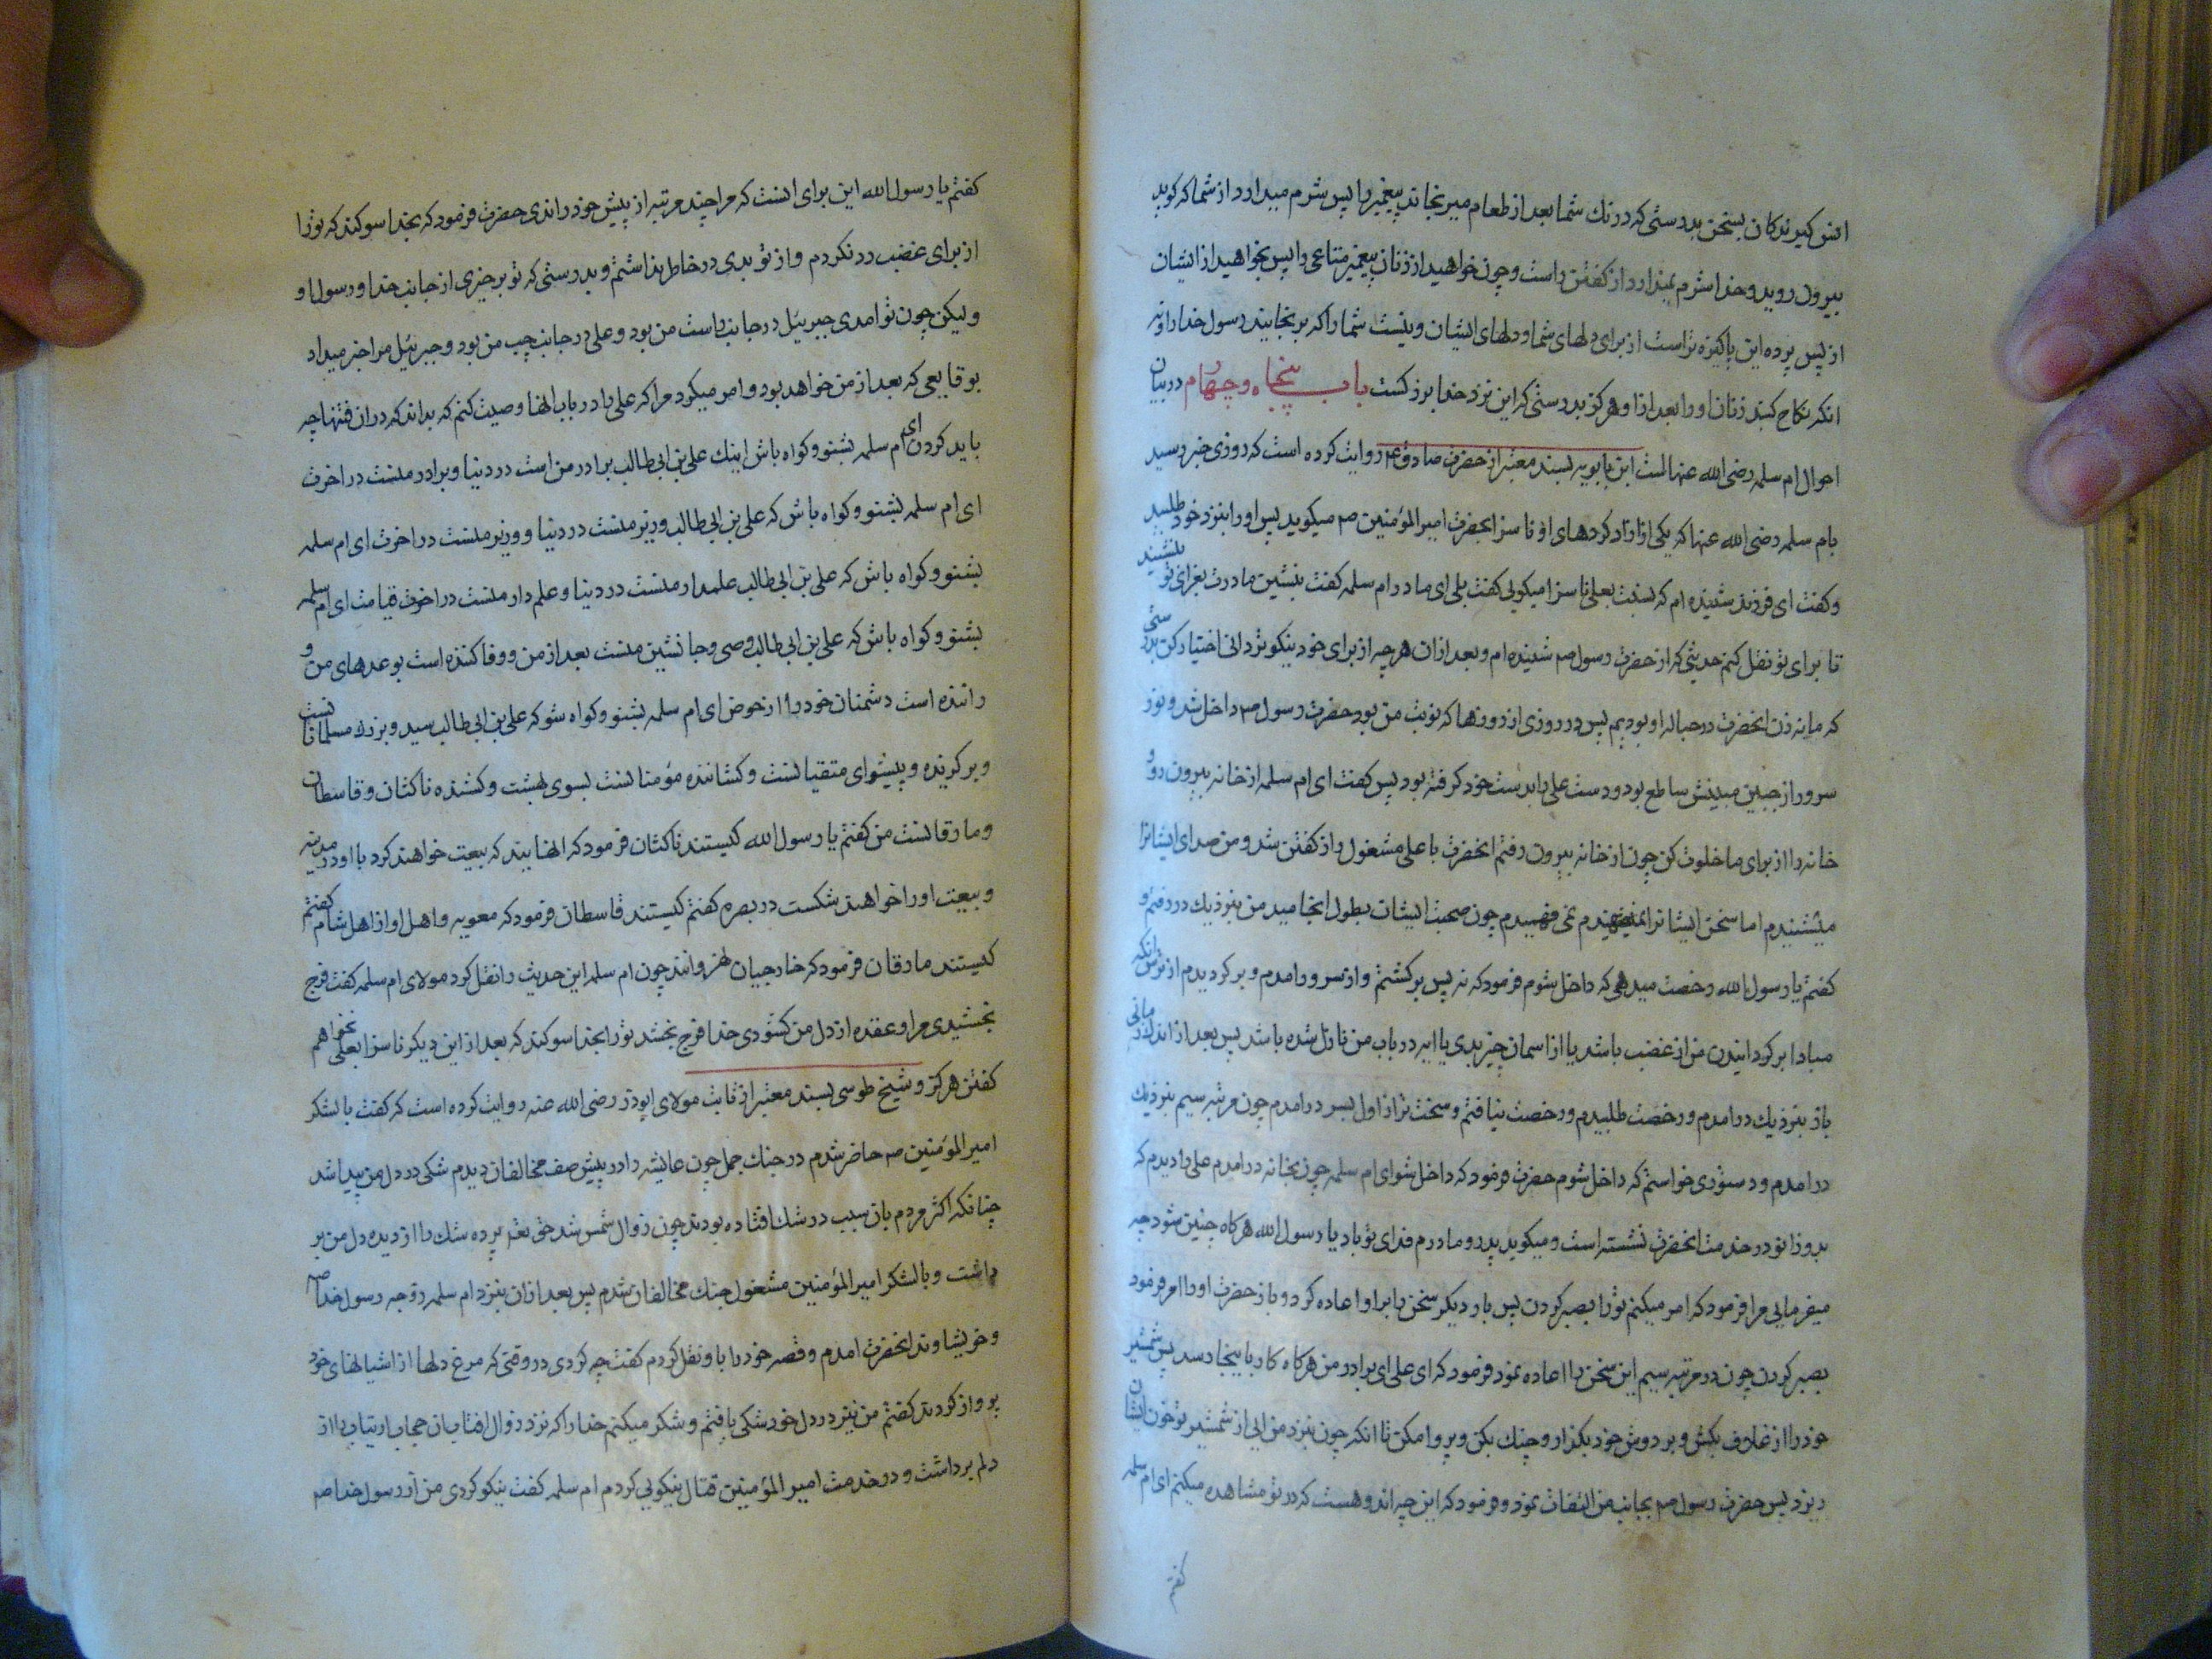 انس کیرندکان بسخن بدرستی که درنک شما بعد از طعام میرنجاند پیغمبر را پس شرم میدارد از شما که کوید
بیرون روید و خدا شرم نمیدارد از کفتن راست و چون خواهید از زنان پیغمبر متاعی را پس بخواهید از ایشان
از پس پرده این پاکیزه تر است از برای دلهای شما و دلهای ایشان و نیست شما را که برنجانید رسول خدا را و نه
انکه نکاح کنید زنان او را بعد از او هرکز بدرستی که این نزد خدا بزرکست باب پنجاه و چهارم در بیان
احوال ام سلمه رضی الله عنهاست ابن بابویه بسند معتبر از حضرت صادق ع م روایت کرده است که روزی خبر رسید
بام سلمه رضی الله عنها که یکی از ازاد کردهای او ناسزا بحضرت امیر المؤمنین صم میکوید پس او را بنزد خود طلبید
و کفت ای فرزند شنیده ام که نسبت بعلی ناسزا میکویی کفت بلی ای مادر ام سلمه کفت بنشین مادرت بعزای تو بنشیند
تا برای تو نقل کنم حدیثی که از حضرت رسول صم شنیده ام و بعد از ان هرچه از برای خود نیکو تر دانی اختیار کن بدرستی
که ما نه زن انحضرت در حباله او بودیم پس در روزی از روزها که نوبت من بود حضرت رسول صم داخل شد و نور
سرور از جبین مبینش ساطع بود و دست علی را بدست خود کرفته بود پس کفت ای ام سلمه از خانه بیرون رو و
خانه را از برای ما خلوت کن چون از خانه بیرون رفتم انحضرت با علی مشغول راز کفتن شد و من صدای ایشانرا
میشنیدم اما سخن ایشانرا نمی فهمیدم چون صحبت ایشان بطول انجامید من بنزدیک در رفتم و
کفتم یا رسول الله رخصت میدهی که داخل شوم فرمود که نه پس برکشتم و از سر ورامدم و برکردیدم از ترس انکه
مبادا برکردانیدن من از غضب باشد یا از اسمان چیز بدی یا ایه در باب من نازل شده باشد پس بعد از اندک زمانی
باز بنزدیک در امدم و رخصت طلبیدم و رخصت نیافتم و سخت تر از اول بسر در امدم چون مرتبه سیم بنزدیک
در امدم و دستوری خواستم که داخل شوم حضرت فرمود که داخل شو ای ام سلمه چون بخانه در امدم علی را دیدم که
بدو زانو در خدمت انحضرت نشسته است و میکوید پدر و مادرم فدای تو باد یا رسول الله هرکاه چنین شود چه
میفرمایی مرا فرمود که امر میکنم تو را بصبر کردن پس بار دیکر سخن را بر او اعاده کرد و باز حضرت او را امر فرمود
بصبر کردن چون در مرتبه سیم این سخن را اعاده نمود فرمود که ای علی ای برادر من هرکاه کار باینجا رسد پس شمشیر
خود را از غلاف بکش و بر دوش خود بکذار و جنک بکن و پروا مکن تا انکه چون بنزد من ایی از شمشیر تو خون ایشان
ریزد پس حضرت رسول صم بجانب من التفات نمود و فرمود که این چه اندوهست که در تو مشاهده میکنم ای ام سلمه
کفتم
کفتم یا رسول الله این برای انست که مرا چند مرتبه از پیش خود راندی حضرت فرمود که بخدا سوکند که تو را
از برای غضب رد نکردم و از تو بدی در خاطر نداشتم و بدرستی که تو بر خیری از جانب خدا و رسول او
ولیکن چون تو امدی جبرییل در جانب راست من بود و علی در جانب چپ من بود و جبرییل مرا خبر میداد
بوقایعی که بعد از من خواهد بود و امر میکرد مرا که علی را در باب انها وصیت کنم که بداند که در ان فتنها چه
باید کردن ای ام سلمه بشنو و کواه باش اینک علی بن ابی طالب برادر من است در دنیا و برادر منست در اخرت
ای ام سلمه بشنو و کواه باش که علی بن ابی طالب وزیر منست در دنیا و وزیر منست در اخرت ای ام سلمه
بشنو و کواه باش که علی بن ابی طالب علمدار منست در دنیا و علم دار منست در اخرت قیامت ای ام سلمه
بشنو و کواه باش که علی بن ابی طالب وصی و جانشین منست بعد از من و وفا کننده است بوعدهای من و
راننده است دشمنان خود را از حوض ای ام سلمه بشنو و کواه شو که علی بن ابی طالب سید و بزرک مسلمانانست
و برکزیده و پیشوای متقیانست و کشاننده مؤمنانست بسوی بهشت و کشنده ناکثان و قاسطان
و مارقانست من کفتم یا رسول الله کیستند ناکثان فرمود که انهایند که بیعت خواهند کرد با او در مدینه
و بیعت او را خواهند شکست در بصره کفتم کیستند قاسطان فرمود که معویه و اهل او از اهل شام کفتم
کیستند مارقان فرمود که خارجیان نهروانند چون ام سلمه این حدیث را نقل کرد مولای ام سلمه کفت فرج
بخشیدی مرا و عقده از دل من کشودی خدا فرج بخشد تو را بخدا سوکند که بعد از این دیکر ناسزا بعلی نخواهم
کفتن هرکز و شیخ طوسی بسند معتبر از ثابت مولای ابوذر رضی الله عنه روایت کرده است که کفت با لشکر
امیر المؤمنین صم حاضر شدم در جنک جمل چون عایشه را در پیش صف مخالفان دیدم شکی در دل من پیدا شد
چنانکه اکثر مردم بان سبب در شک افتاده بودند چون زوال شمس شد حق تعم پرده شک را از دیده دل من بر
داشت و با لشکر امیر المؤمنین مشغول جنک مخالفان شدم پس بعد از ان بنزد ام سلمه زوجه رسول خدا صم
و خویشاوند انحضرت امدم و قصه خود را باو نقل کردم کفت چه کردی در وقتی که مرغ دلها از اشیانهای خود
پرواز کردند کفتم من نیز در دل خود شکی یافتم و شکر میکنم خدا را که نزد زوال افتاب ان حجاب ارتیاب را از
دلم برداشت و در خدمت امیر المؤمنین قتال نیکویی کردم ام سلمه کفت نیکو کردی من از رسول خدا صم